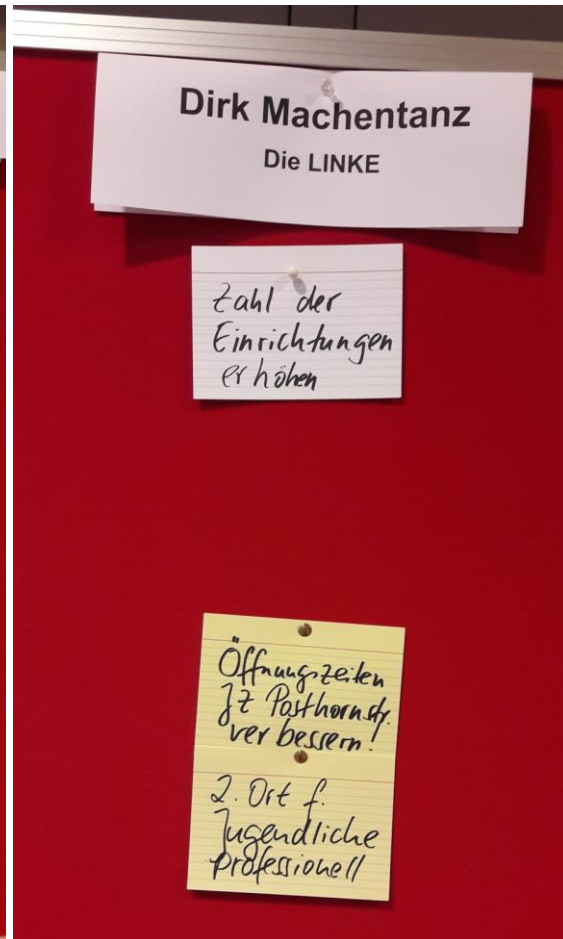 Dirk Machentanz
Die LINKE
Zahl der
Einrichtungen
erhöhen
Öffnungszeiten
JZ Posthornstr.
verbessern!
2. Ort f.
Jugendliche
professionell